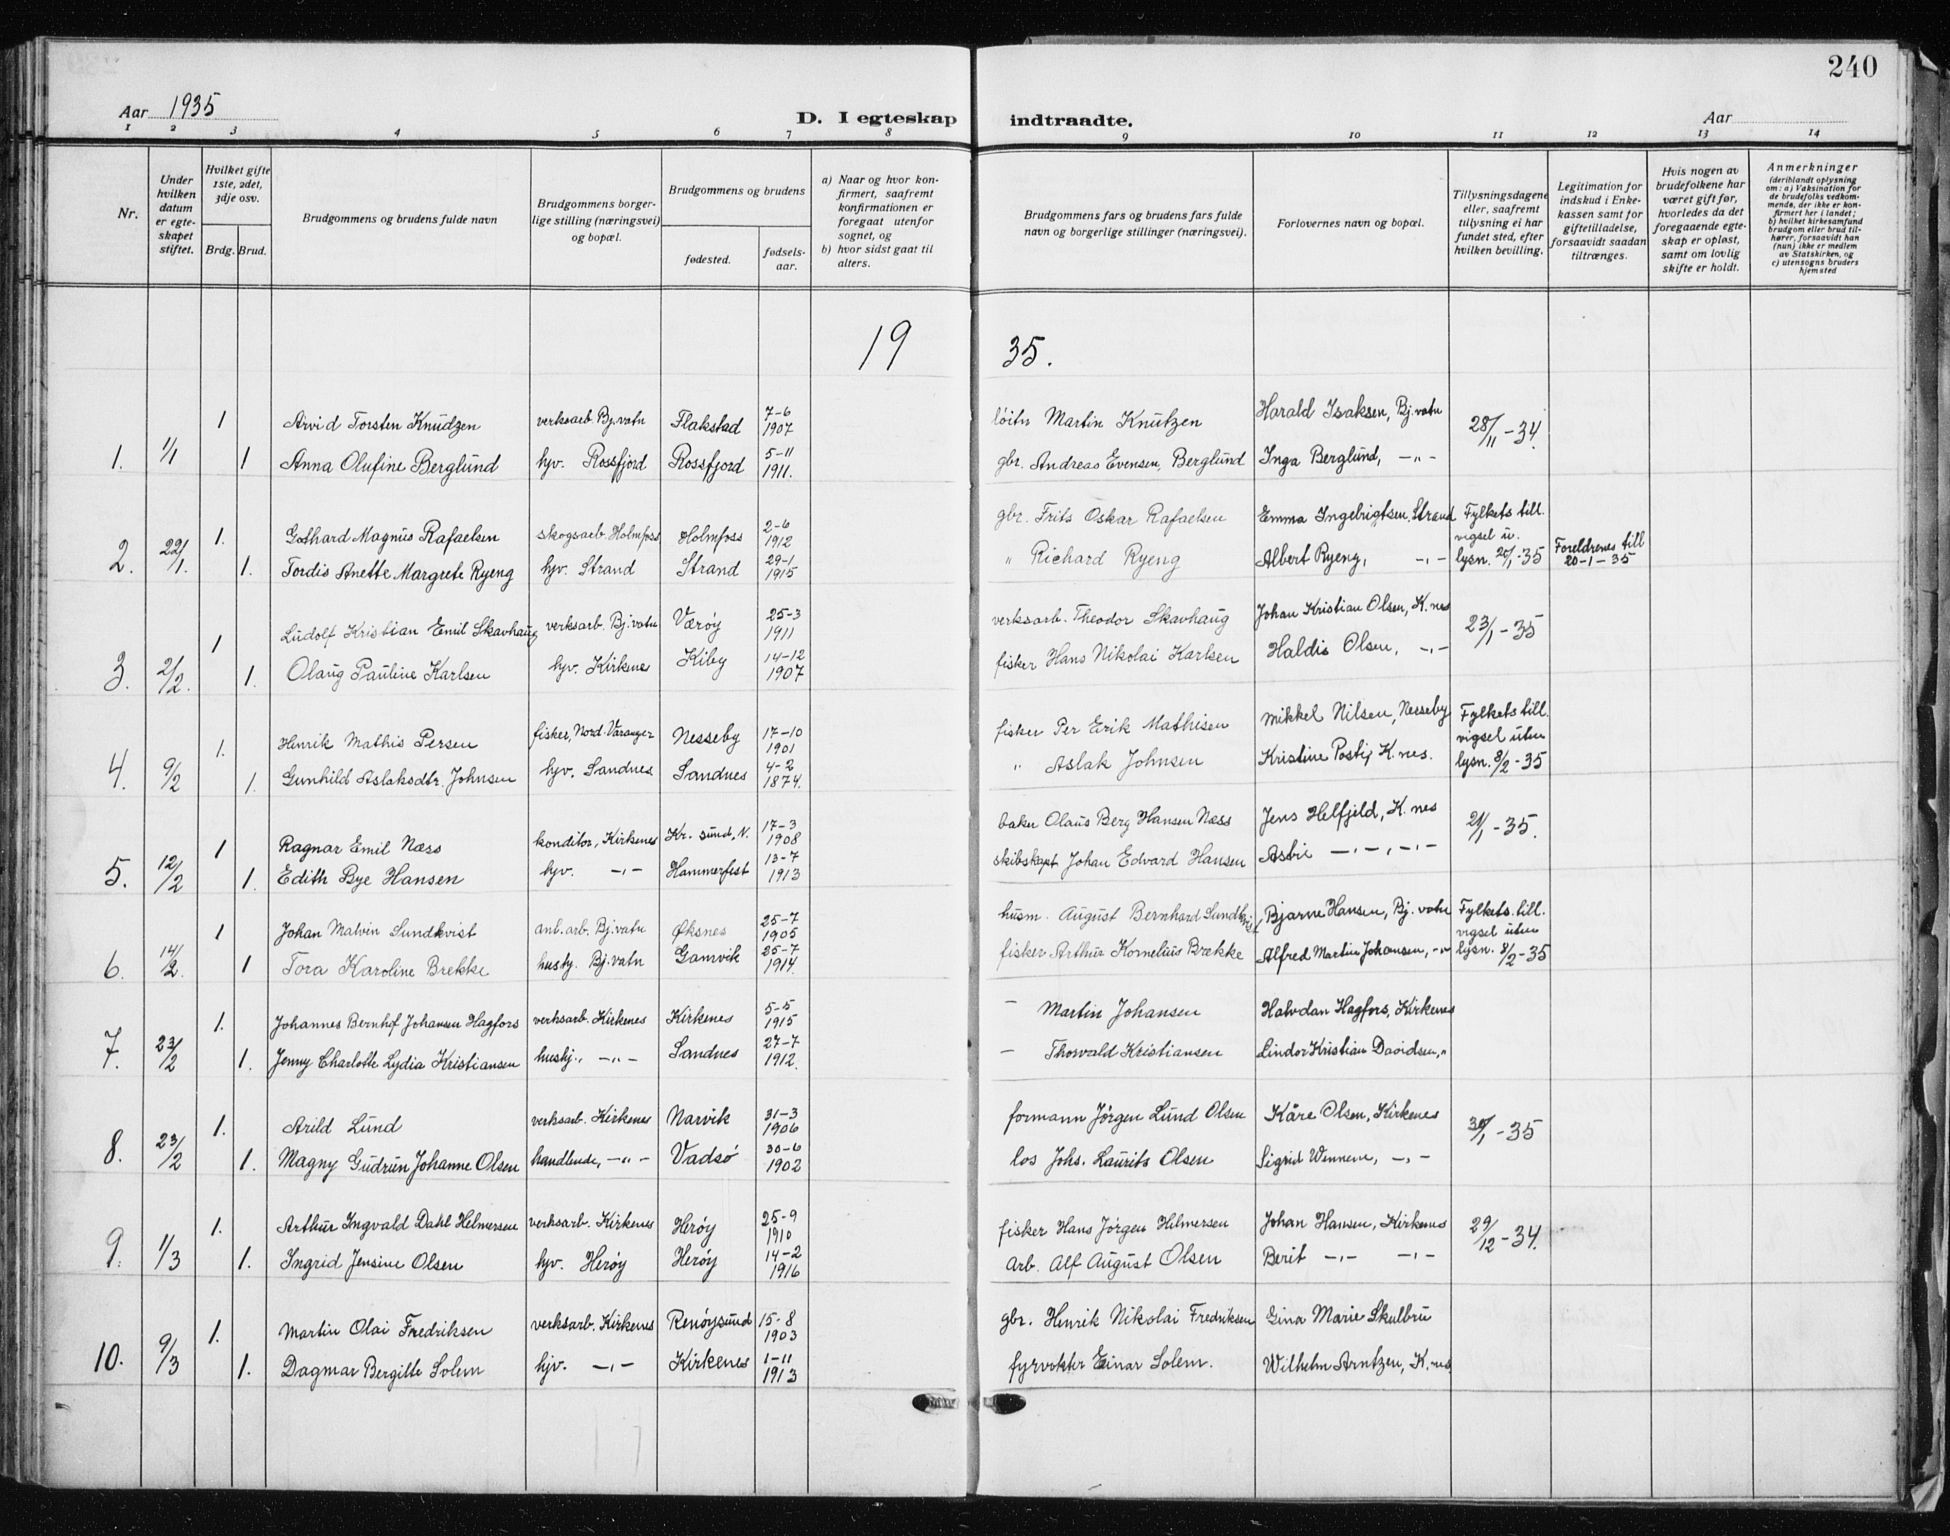 240
Aar 1935
D. I egteskap indtraadte.
Aar
1 2 3 4 5 6 7 8 9 10 11 12 13 14
Nr.
Under hvilken datum er egteskapet stiftet.
Hvilket gifte 1ste, 2det, 3dje osv.
Brdg. Brud.
Brudgommens og brudens fulde navn
Brudgommens borgerlige stilling (næringsvei) og bopæl.
Brudgommens og brudens
fødested.
fødselsaar.
a) Naar og hvor konfirmert, saafremt konfirmationen er foregaat utenfor sognet, og
b) hvor sidst gaat til alters.
Brudgommens fars og brudens fars fulde navn og borgerlige stillinger (næringsvei).
Forlovernes navn og bopæl.
Tillysningsdagene eller, saafremt tillysning ei har fundet sted, efter hvilken bevilling.
Legitimation for indskud i Enkekassen samt for giftetilladelse, forsaavidt saadan tiltrænges.
Hvis nogen av brudefolkene har været gift før, hvorledes da det foregaaende egteskap er opløst, samt om lovlig skifte er holdt.
Anmerkninger
(deriblandt oplysning om: a) Vaksination for de brudefolks vedkommende, der ikke er konfirmert her i landet;
b) hvilket kirkesamfund brudgom eller brud tilhører, forsaavidt han (hun) ikke er medlem av Statskirken, og
c) utensogns bruders hjemsted
19 35.
1 Arvid Torsten Knudzen verksarb. Bj.vatn Flakstad 7-6 1907 løitn Martin Knutzen Harald Isaksen, Bj.vatn 28/11-34
1. 1/1 1 Anna Olufine Berglund hjv. Rossfjord Rossfjord 5-11 1911. gbr. Andreas Evensen, Berglund Inga Berglund, -"-
1. Gothard Magnus Rafaelsen skogsarb. Holmfoss Holmfoss 2-6 1912 gbr. Frits Oskar Rafaelsen Emma Ingebrigtsen, Strand Fylkets till. vigsel u.
2. 22/1. 1. Tordis Anette Margrete Ryeng hjv. Strand Strand 29-1 1915 " Richard Ryeng Albert Ryeng, -"- lysn. 21/1-35 Foreldrenes till 20-1-35
1 Ludolf Kristian Emil Skavhaug verksarb. Bj.vatn Værøy 25-3 1911 verksarb. Theodor Skavhaug Johan Kristian Olsen, K.nes 23/1-35
3. 2/2. 1. Olaug Pauline Karlsen hjv. Kirkenes Kiby 14-12 1907 fisker Hans Nikolai Karlsen Haldis Olsen, -"-
1. Henrik Mathis Persen fisker, Nord-Varanger Nesseby 17-10 1901 fisker Per Erik Mathisen Mikkel Nilsen, Nesseby Fylkets till. vigsel uten
4. 9/2 1. Gunhild Aslaksdtr. Johnsen hjv. Sandnes Sandnes 4-2 1874. " Aslak Johnsen Kristine Postij K.nes. lysn. 8/2-35
1 Ragnar Emil Næss konditor, Kirkenes Kr.sund, N. 17-3 1908 baker Olaus Berg Hansen Næss Jens Helfjeld, K.nes 21/1-35.
5. 12/2 1. Edith Bye Hansen hjv. -"- Hammerfest 13-7 1913 skibskapt Johan Edvard Hansen -"- -"-
1 Johan Malvin Sundkvist anl.arb. Bj.vatn Øksnes 25-7 1905 husm. August Bernhard Sundkvist Bjarne Hansen, Bj.vatn Fylkets till. vigsel uten
6. 14/2. 1 Tora Karoline Brekke hustj. Bj.vatn Gamvik 25-7 1914. fisker Arthur Kornelius Brække Alfred Martin Johansen, -"- lysn. 8/2-35
1. Johannes Bernhof Johansen Hagfors verksarb. Kirkenes Kirkenes 5-5 1915 - Martin Johansen Halvdan Hagfors, Kirkenes
7. 23/2 1. Jenny Charlotte Lydia Kristiansen hushj., -"- Sandnes 27-7 1912. - Thorvald Kristiansen Lindor Kristian Davidsen, "
1. Arild Lund verksarb. Kirkenes Narvik 31-3 1906 formann Jørgen Lund Olsen Kåre Olsen, Kirkenes 30/1-35
8. 23/2 1. Magny Gudrun Johanne Olsen handlende, -"- Vadsø 30-6 1902 los Johs. Laurits Olsen Sigrid -"-
1. Arthur Ingvald Dahl Helmersen verksarb. Kirkenes Herøy 25-9 1910 fisker Hans Jørgen Hilmersen Johan Hansen, Kirkenes 29/12-34.
9. 1/3 1. Ingrid Jensine Olsen hjv. Herøy Herøy 14-2 1916 arb. Alf August Olsen Berit -"- -"-
1. Martin Olai Fredriksen verksarb. Kirkenes Renøysund 15-8 1903 gbr. Henrik Nikolai Fredriksen Gina Marie Skulbru
10. 9/3 1. Dagmar Bergitte Solem hjv. -"- Kirkenes 1-11 1913 fyrvokter Einar Solem. Wilhelm Arntzen, K.nes